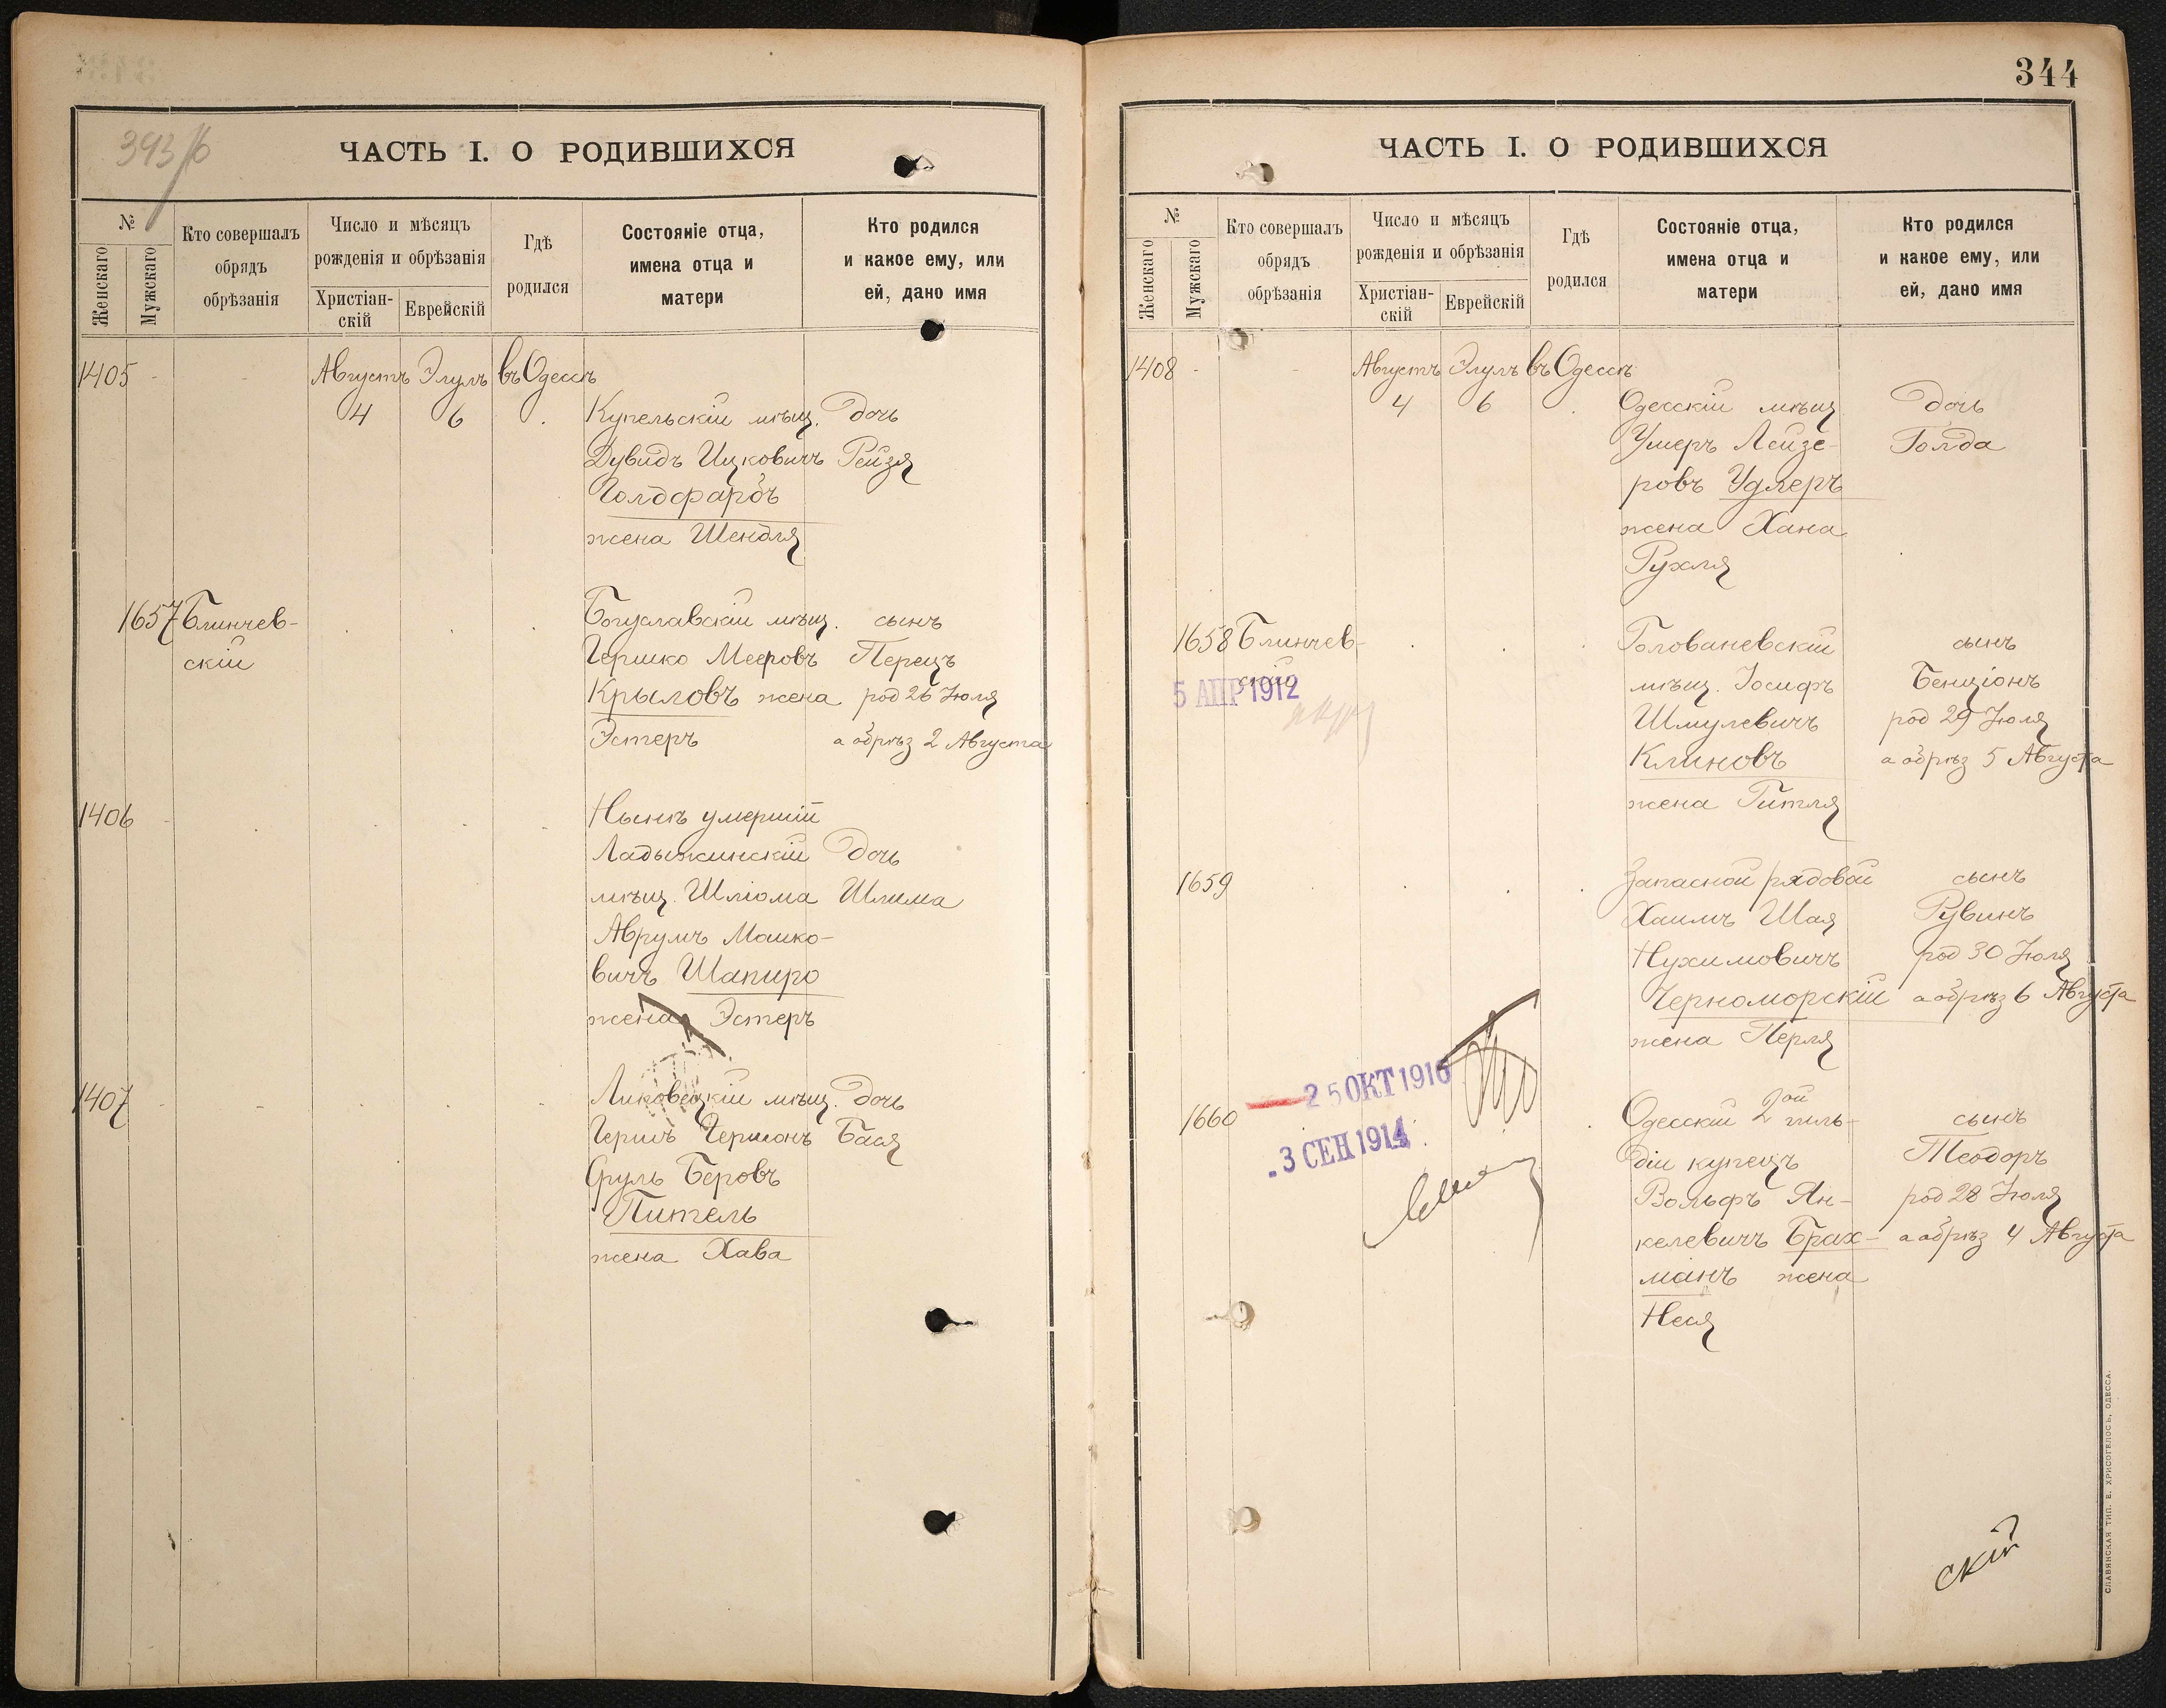 ЧАСТЬ I. О РОДИВШИХСЯ
№
Женскаго
Мужскаго
Кто совершалъ
обрядъ
обрѣзанія
Число и мѣсяцъ
рожденія и обрѣзанія
Христіан-
скій
Еврейскій
Гдѣ
родился
Состояніе отца,
имена отца и
матери
Кто родился
и какое ему, или
ей, дано имя
1405 Августъ Элулъ въ Одессѣ
4 6 Купельскій мѣщ. дочь
Дувидъ Ицковичъ Рейзя
Голдфарбъ
жена Шендля
1657 Блинчев-
скій
Богуславскій мѣщ. сынъ
Гершко Мееровъ Перецъ
Крыловъ жена род 26 Іюля
Эстеръ а обрѣз 2 Августа
1406 Нынѣ умершій
Ладыжинскій дочь
мѣщ. Шліома Шлима
Аврумъ Мошко-
вичъ Шапиро
жена Эстеръ
1407 мѣщ. дочь
Гершъ Гершонъ Бася
Сруль Беровъ
Питель
жена Хава
344
ЧАСТЬ I. О РОДИВШИХСЯ
№
Женскаго
Мужскаго
Кто совершалъ
обрядъ
обрѣзанія
Число и мѣсяцъ
рожденія и обрѣзанія
Христіан-
скій
Еврейскій
Гдѣ
родился
Состояніе отца,
имена отца и
матери
Кто родился
и какое ему, или
ей, дано имя
1408 Августъ Элулъ въ Одессѣ
4 6 Одесскій мѣщ дочь
Умеръ Лейзе- Голда
ровъ Удлеръ
жена Хана
Рухля
1658 Блинчев-
скій
5 АПР 1912
Голованевскій сынъ
мѣщ. Іосифъ Бенціонъ
Шмулевичъ род 29 Іюля
Клиновъ а обрѣз 5 Августа
жена Гитля
1659 Запасной рядовой сынъ
Хаимъ Шая Рувинъ
Нухимовичъ род 30 Іюля
Черноморскій а обрѣз 6 Августа
жена Перля
25 ОКТ 1916
1660 Одесскій 2ой гиль- сынъ
- 3 СЕН 1914
діи купецъ Теодоръ
Вольфъ Ян- род 28 Іюля
келевичъ Брах- а обрѣз 4 Августа
манъ жена
Неся
скій
СЛАВЯНСКАЯ ТИП. Е. ХРИСОГЕЛОСЪ, ОДЕССА.